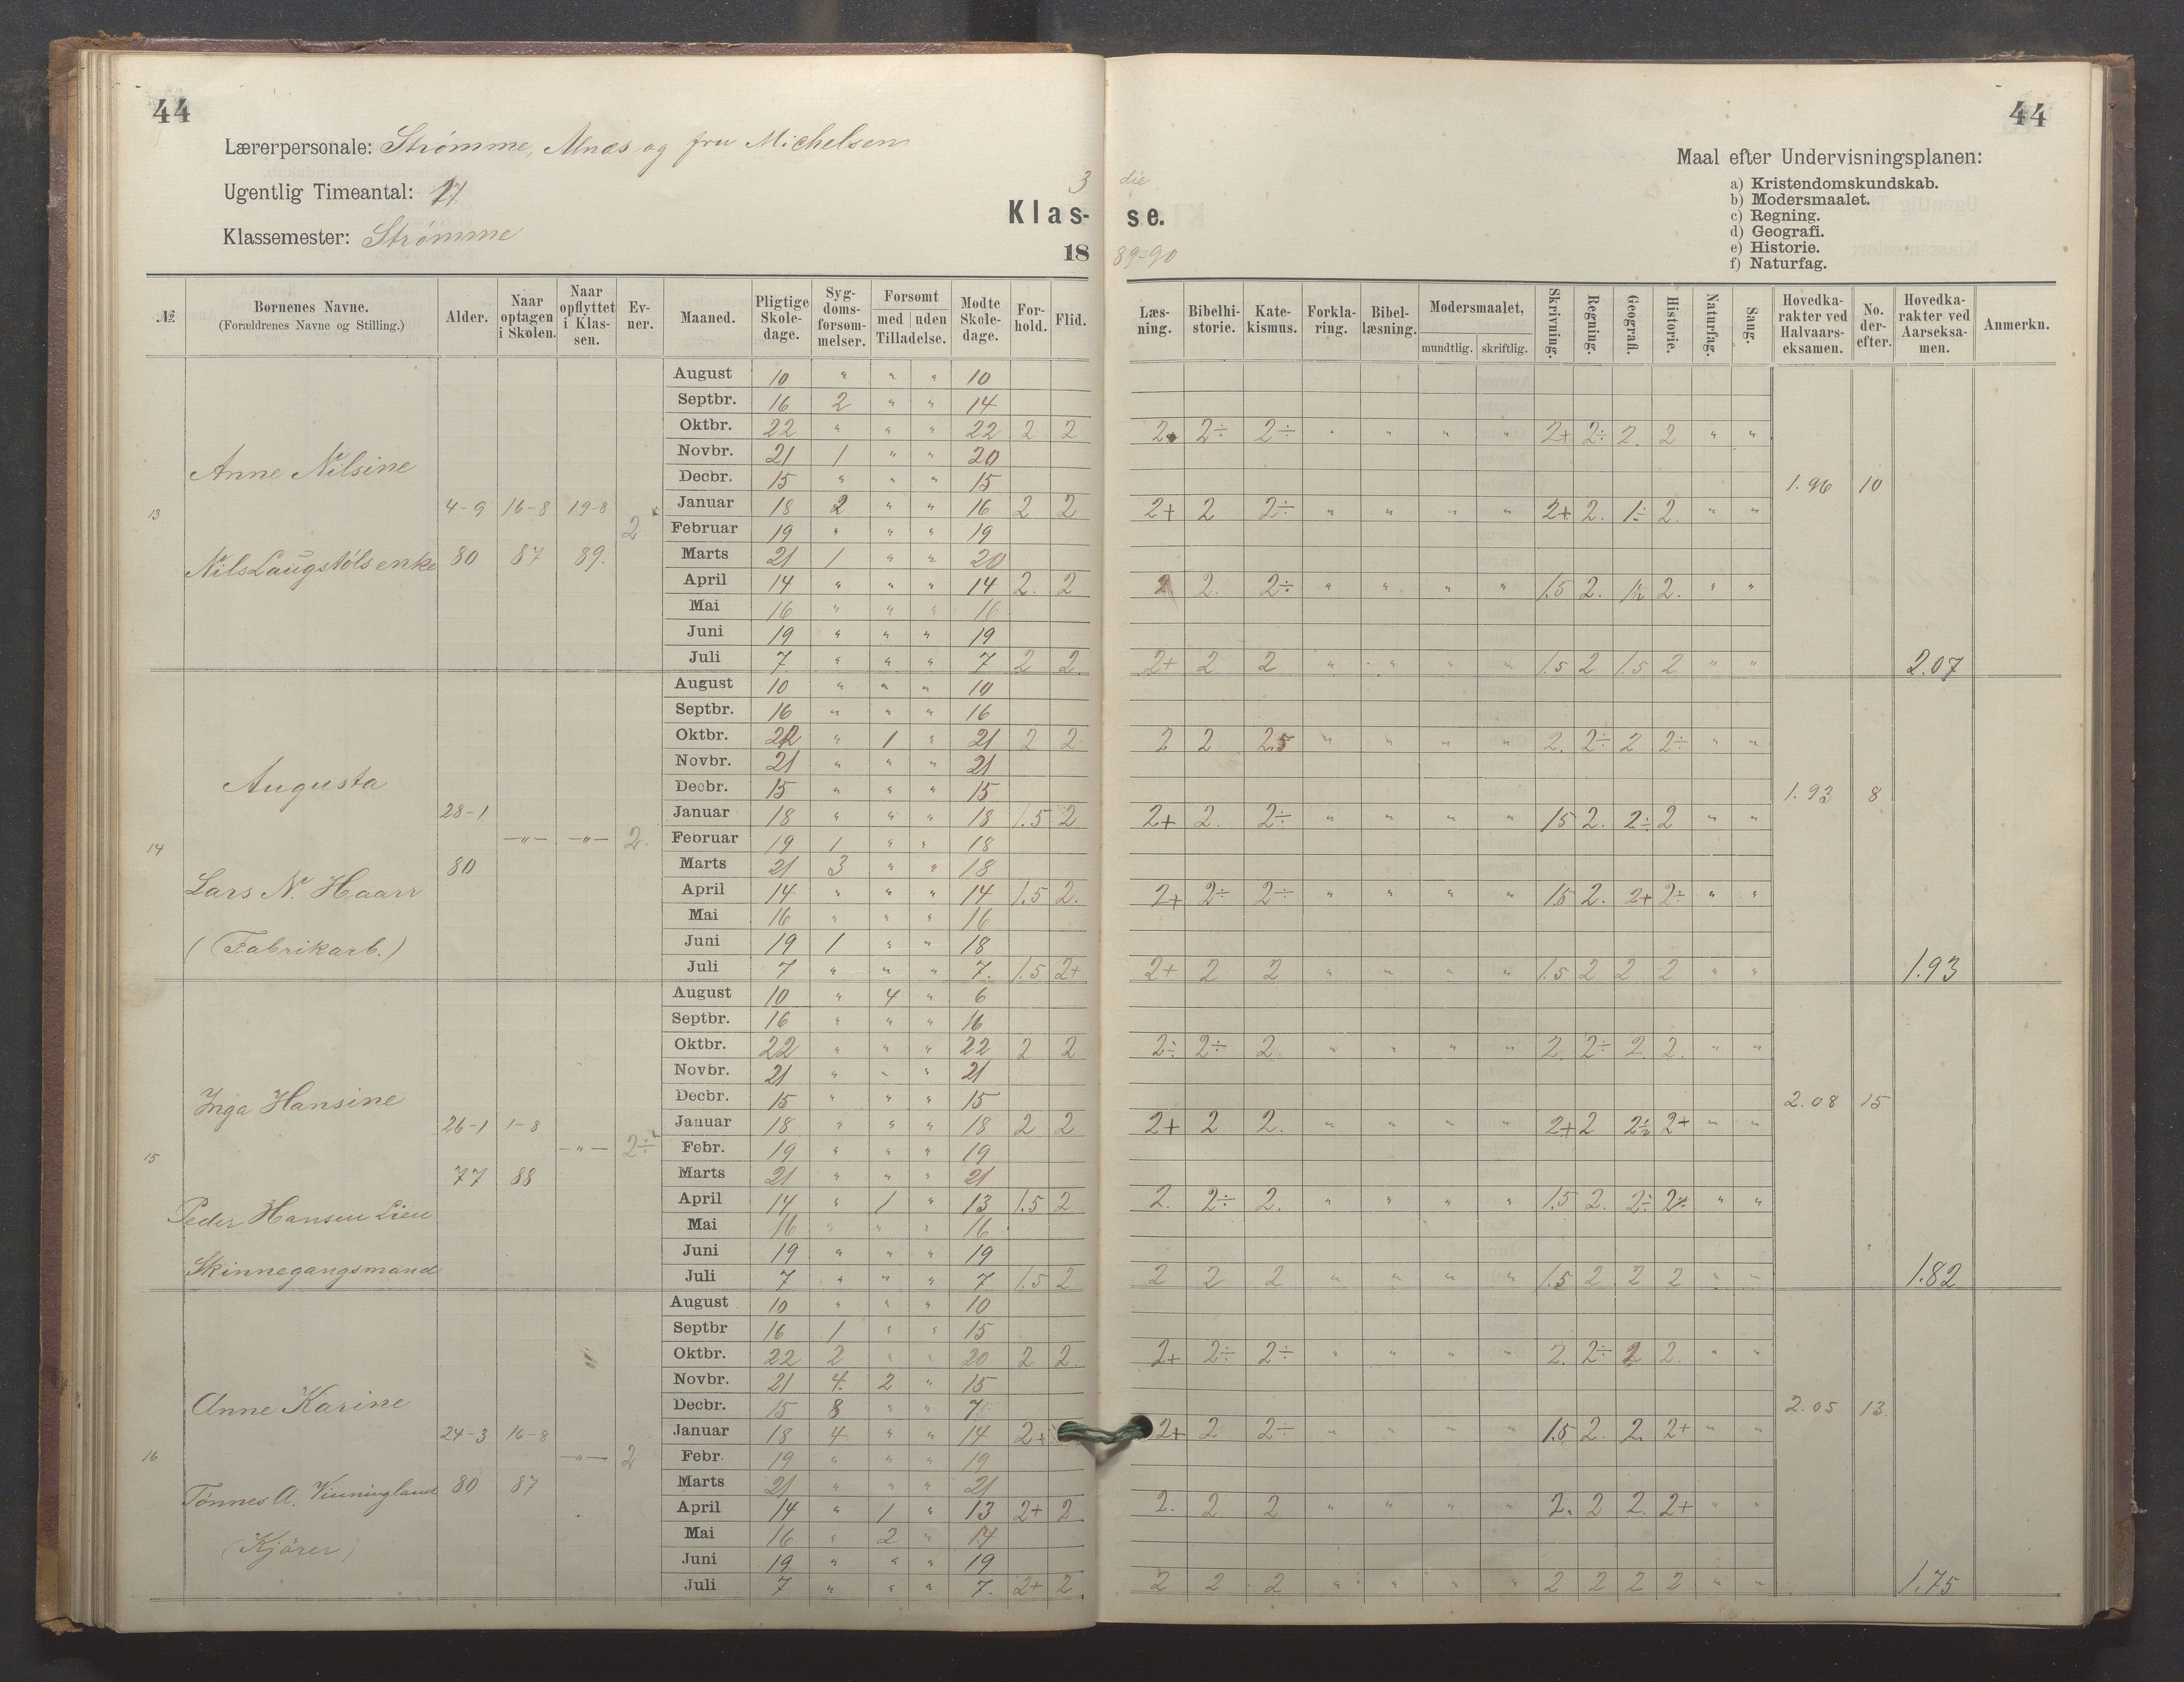 44
44
Lærerpersonale: Strømme, Alnæs og fru Michelsen
Ugentlig Timeantal:
Klassemester: Strømme
3 die
Klas- se.
18 89-90
Maal efter Undervisningsplanen:
a) Kristendomskundskab.
b) Modersmaalet.
c) Regning.
d) Geografi.
e) Historie.
f) Naturfag.
№. Børnenes Navne. (Forældrenes Navne og Stilling.) Alder. Naar optagen i Skolen. Naar opflyttet i Klassen. Evner. Maaned. Pligtige Skoledage. Sygdomsforsømmelser. Forsømt med uden Tilladelse. Mødte Skoledage. Forhold. Flid. Læsning. Bibelhistorie. Katekismus. Forklaring. Bibellæsning. Modersmaalet, mundtlig. skriftlig. Skrivning. Regning. Geografi. Historie. Naturfag. Sang. Hovedkarakter ved Halvaarseksamen. No. derefter. Hovedkarakter ved Aarseksamen. Anmerkn.
13 Anne Nilsine
4-9 16-8 19-8 2
80 87 89.
August 10 " " " 10
Septbr. 16 2 " " 14
Oktbr. 22 " " " 22 2 2 2+ 2÷ 2÷ " " " " 2+ 2÷ 2. 2 " "
Novbr. 21 1 " " 20
Decbr. 15 " " " 15 1.96 10
Januar 18 2 " " 16 2 2 2+ 2 2÷ " " " " 2+ 2. 1÷ 2. " "
Februar 19 " " " 19
Marts 21 1 " " 20
April 14 " " " 14 2. 2 2 2. 2÷ " " " " 1.5 2. 2. " "
Mai 16 " " " 16
Juni 19 " " " 19
Juli 7 " " " 7 2 2 2+ 2 2 " " " " 1.5 2 1.5 2 " " 2.07
14 Augusta
Lars N. Haarr
(Fabrikarb.)
28-1 80 —"— —"— 2.
August 10 " " " 10
Septbr. 16 " " " 16
Oktbr. 22 " 1 " 21 2 2 2 2 2.5 " " " " 2. 2÷ 2 2÷ " "
Novbr. 21 " " " 21
Decbr. 15 " " " 15 1.93 8
Januar 18 " " " 18 1.5 2 2+ 2. 2÷ " " " " 15 2. 2÷ 2 " "
Februar 19 1 " " 18
Marts 21 3 " " 18
April 14 " " " 14 1.5 2. 2+ 2÷ 2÷ " " " " 15 2. 2+ 2÷ " "
Mai 16 " " " 16
Juni 19 1 " " 18
Juli 7 " " " 7. 1.5 2+ 2+ 2 2 " " " " 1.5 2 2 2 " " 1.93
15 Inga Hansine
Peder Hansen Lien
Skinnegangsmand
26-1 1-8 —"— 2÷
77 88
August 10 " 4 " 6
Septbr. 16 " " " 16
Oktbr. 22 " " " 22 2 2 2÷ 2÷ 2. " " " " 2. 2÷ 2. 2. " "
Novbr. 21 " " " 21
Decbr. 15 " " " 15 2.08 15
Januar 18 " " " 18 2 2 2+ 2 2. " " " " 2+ 2 2÷ 2+ " "
Febr. 19 " " " 19
Marts 21 " " " 21
April 14 " 1 " 13 1.5 2 2. 2÷ 2. " " " " 1.5 2. 2÷ 2÷ " "
Mai 16 " " " 16
Juni 19 " " " 19
Juli 7 " " " 7 1.5 2 2 2 2 " " " " 1.5 2 2 2 " " 1.82
16 Anne Karine
Tönnes A. Vinningland
(Kjörer)
24-3 16-8 —"— 2
80 87
August 10 " " " 10
Septbr 16 1 " " 15
Oktbr. 22 2 " " 20 2 2. 2+ 2÷ 2÷ " " " " 2. 2÷ 2 2. " "
Novbr. 21 4. 2 " 15
Decbr. 15 8 " " 7 2.05 13
Januar 18 4 " " 14 2+ 2+ 2 2÷ " " " " 1.5 2. 2. 2+ " "
Febr. 19 " " " 19
Marts 21 " " " 21
April 14 " 1 " 13 2+ 2 2. 2 2 " " " " 2. 2 2. 2+ " "
Mai 16 " 2 " 14
Juni 19 " " " 19
Juli 7 " " " 7. 2+ 2 2 2 2 " " " " 2 2 2 2 " " 1.75